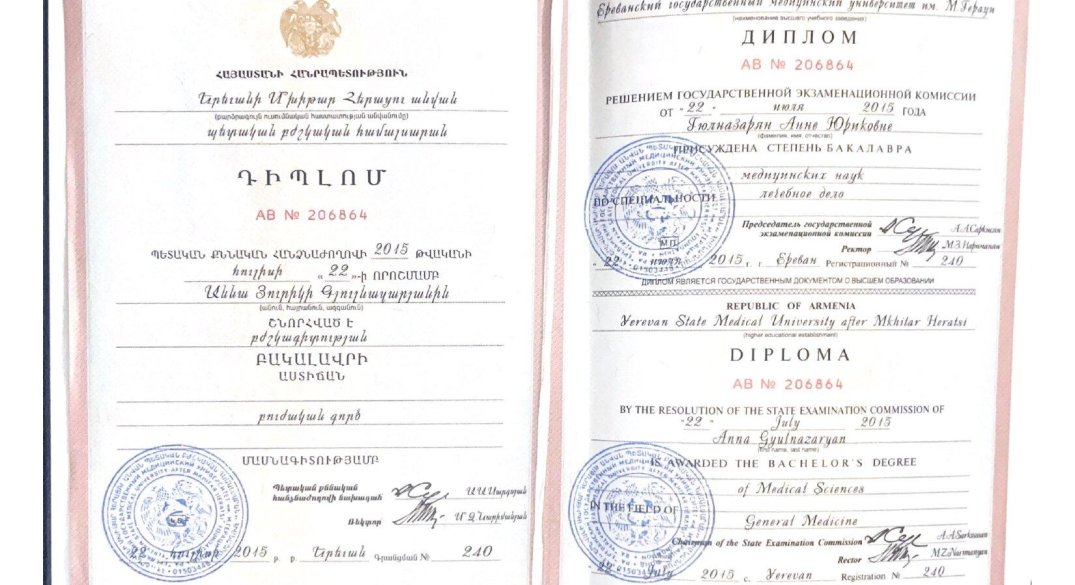 ՀԱՅԱՍՏԱՆԻ ՀԱՆՐԱՊԵՏՈՒԹՅՈՒՆ
Երևանի Մխիթար Հերացու անվան
(բարձրագույն ուսումնական հաստատության անվանումը)
պետական բժշկական համալսարան
ԴԻՊԼՈՄ
AB № 206864
ՊԵՏԱԿԱՆ ՔՆՆԱԿԱՆ ՀԱՆՁՆԱԺՈՂՈՎԻ 2015 ԹՎԱԿԱՆԻ
հուլիսի « 22 »-ի ՈՐՈՇՄԱՄԲ
Աննա Յուրիկի Գյուլնազարյանին
(անուն, հայրանուն, ազգանուն)
ՇՆՈՐՀՎԱԾ Է
բժշկագիտության
ԲԱԿԱԼԱՎՐԻ
ԱՍՏԻՃԱՆ
բուժական գործ
ՄԱՍՆԱԳԻՏՈՒԹՅԱՄԲ
Պետական քննական
հանձնաժողովի նախագահ
Ռեկտոր
22 հուլիսի 2015 թ. Երևան Գրանցման № 240
Ереванский государственный медицинский университет им. М. Гераци
(наименование высшего учебного заведения)
ДИПЛОМ
AB № 206864
РЕШЕНИЕМ ГОСУДАРСТВЕННОЙ ЭКЗАМЕНАЦИОННОЙ КОМИССИИ
ОТ "22" июля 2015 ГОДА
Гюлназарян Анне Юриковне
(фамилия, имя, отчество)
ПРИСУЖДЕНА СТЕПЕНЬ БАКАЛАВРА
медицинских наук
лечебное дело
ПО СПЕЦИАЛЬНОСТИ
Председатель государственной
экзаменационной комиссии А.А.Саркисян
Ректор М.З.Нариманян
М.П.
"22" июля 2015 г. г. Ереван Регистрационный № 240
ДИПЛОМ ЯВЛЯЕТСЯ ГОСУДАРСТВЕННЫМ ДОКУМЕНТОМ О ВЫСШЕМ ОБРАЗОВАНИИ
REPUBLIC OF ARMENIA
Yerevan State Medical University after Mkhitar Heratsi
(higher educational establishment)
DIPLOMA
AB № 206864
BY THE RESOLUTION OF THE STATE EXAMINATION COMMISSION OF
"22" July 2015
Anna Gyulnazaryan
(first name, last name)
IS AWARDED THE BACHELOR'S DEGREE
of Medical Sciences
IN THE FIELD OF
General Medicine
Chairman of the State Examination Commission A.A.Sarksuan
Rector M.Z.Narimanyan
"22" July 2015 c. Yerevan Registration № 240